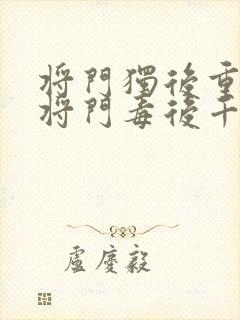 將門獨後重
將門毒後千
盧慶毅